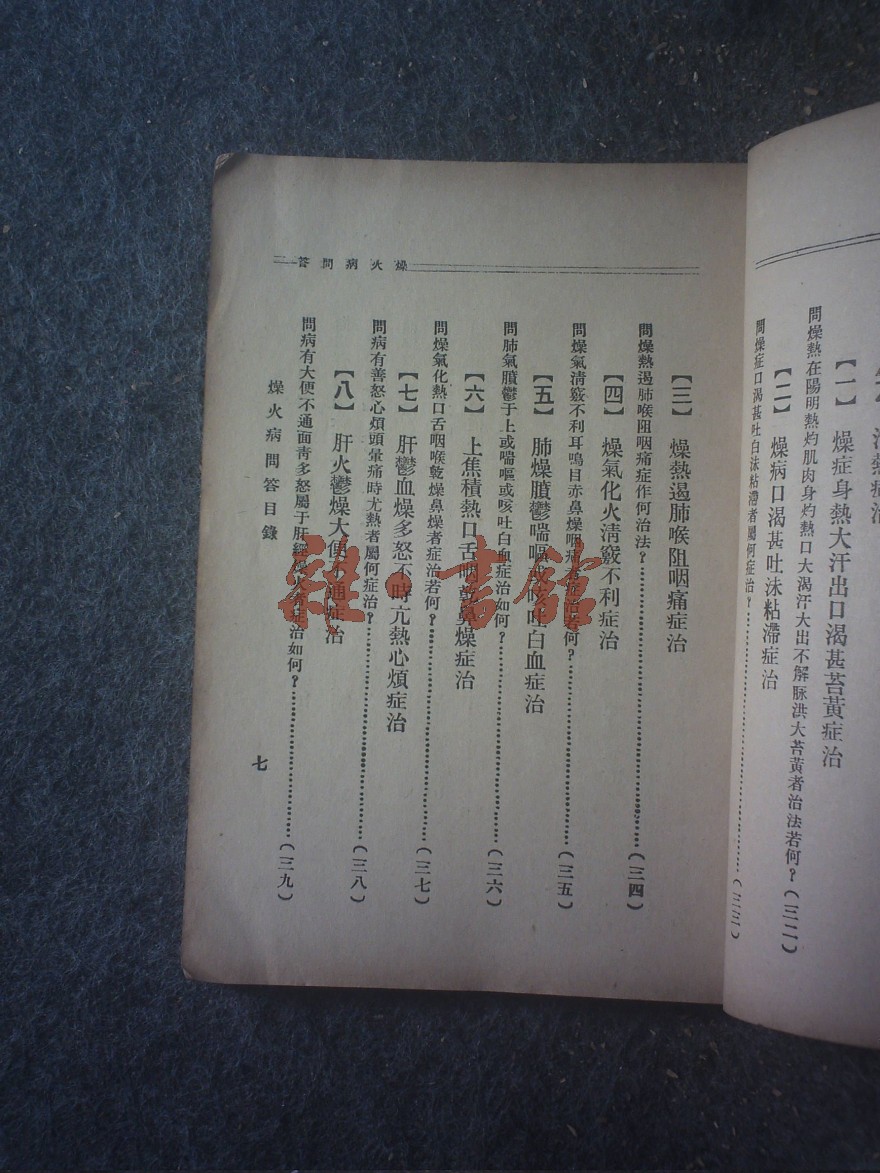 【一】 燥症身熱大汗出口渴甚苔黃症治
問燥熱在陽明熱灼肌肉身灼熱口大渴汗大出不解脉洪大苔黃者治法若何?(三二)
【二】 燥病口渴甚吐沫粘滯症治
問燥症口渴甚吐白沫粘滯者屬何症治?……(三三)
燥火病問答
【三】 燥熱遏肺喉阻咽痛症治
問燥熱遏肺喉阻咽痛症作何治法?……(三四)
【四】 燥氣化火淸竅不利症治
問燥氣淸竅不利耳鳴目赤鼻燥咽痛症治若何?……(三五)
【五】 肺燥膹鬱喘嘔或咳吐白血症治
問肺氣膹鬱于上或喘嘔或咳吐白血症治如何?……(三六)
【六】 上焦積熱口舌咽乾鼻燥症治
問燥氣化熱口舌咽喉乾燥鼻燥者症治若何?……(三七)
【七】 肝鬱血燥多怒不時亢熱心煩症治
問病有善怒心煩頭暈痛時尤熱者屬何症治?……(三八)
【八】 肝火鬱燥大便不通症治
問病有大便不通面靑多怒屬于肝經 火者症治如何?……(三九)
燥火病問答目錄
七
雜·書館